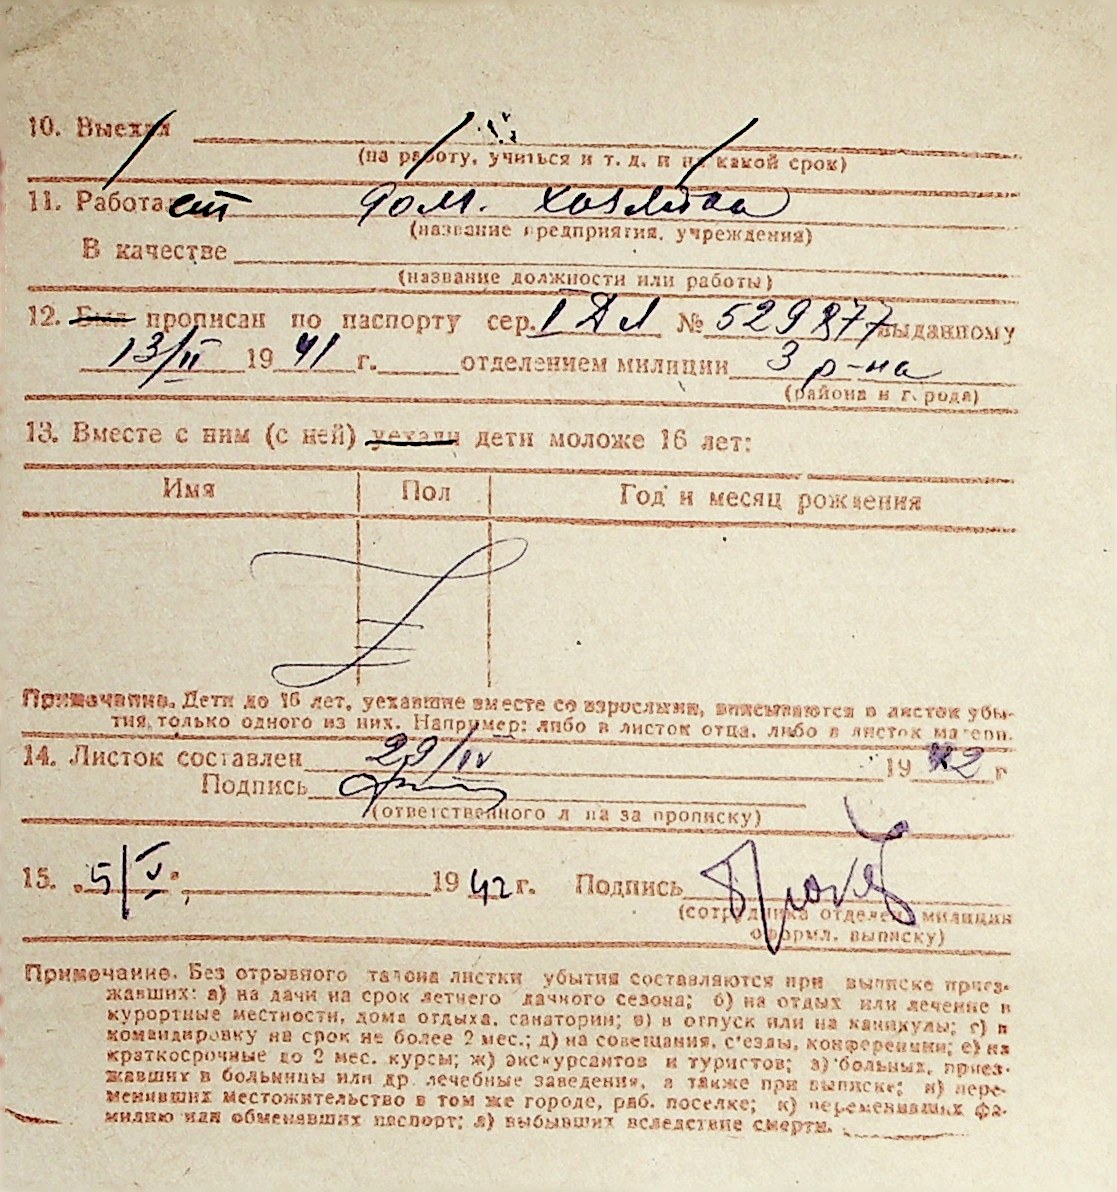 10. Выехал
(на работу, учиться и т. д. и на какой срок)
11. Работает дом. хозяйка
(название предприятия, учреждения)
В качестве
(название должности или работы)
12. Был прописан по паспорту сер. I ДЛ № 529877 выданному
13/II 1941 г. отделением милиции 3 р-на
(района и города)
13. Вместе с ним (с ней) уехали дети моложе 16 лет:
Имя Пол Год и месяц рождения
Примечание. Дети до 16 лет, уехавшие вместе со взрослыми, вписываются в листок убы-
тия, только одного из них. Например: либо в листок отца, либо в листок матери.
14. Листок составлен 29/IV 1942 г
Подпись
(ответственного л на за прописку)
15. 5/V 1942 г. Подпись
(сотрудника отделен. милиции
оформл. выписку)
Примечание. Без отрывного талона листки убытия составляются при выписке приез-
жавших: а) на дачи на срок летнего дачного сезона; б) на отдых или лечение в
курортные местности, дома отдыха, санатории; в) в отпуск или на каникулы; г) в
командировку на срок не более 2 мес.; д) на совещания, с'езды, конференции; е) на
краткосрочные до 2 мес. курсы; ж) экскурсантов и туристов; з) больных, приез-
жавших в больницы или др. лечебные заведения, а также при выписке; и) пере-
менивших местожительство в том же городе, раб. поселке; к) переменивших фа-
милию или обменявших паспорт; л) выбывших вследствие смерти.